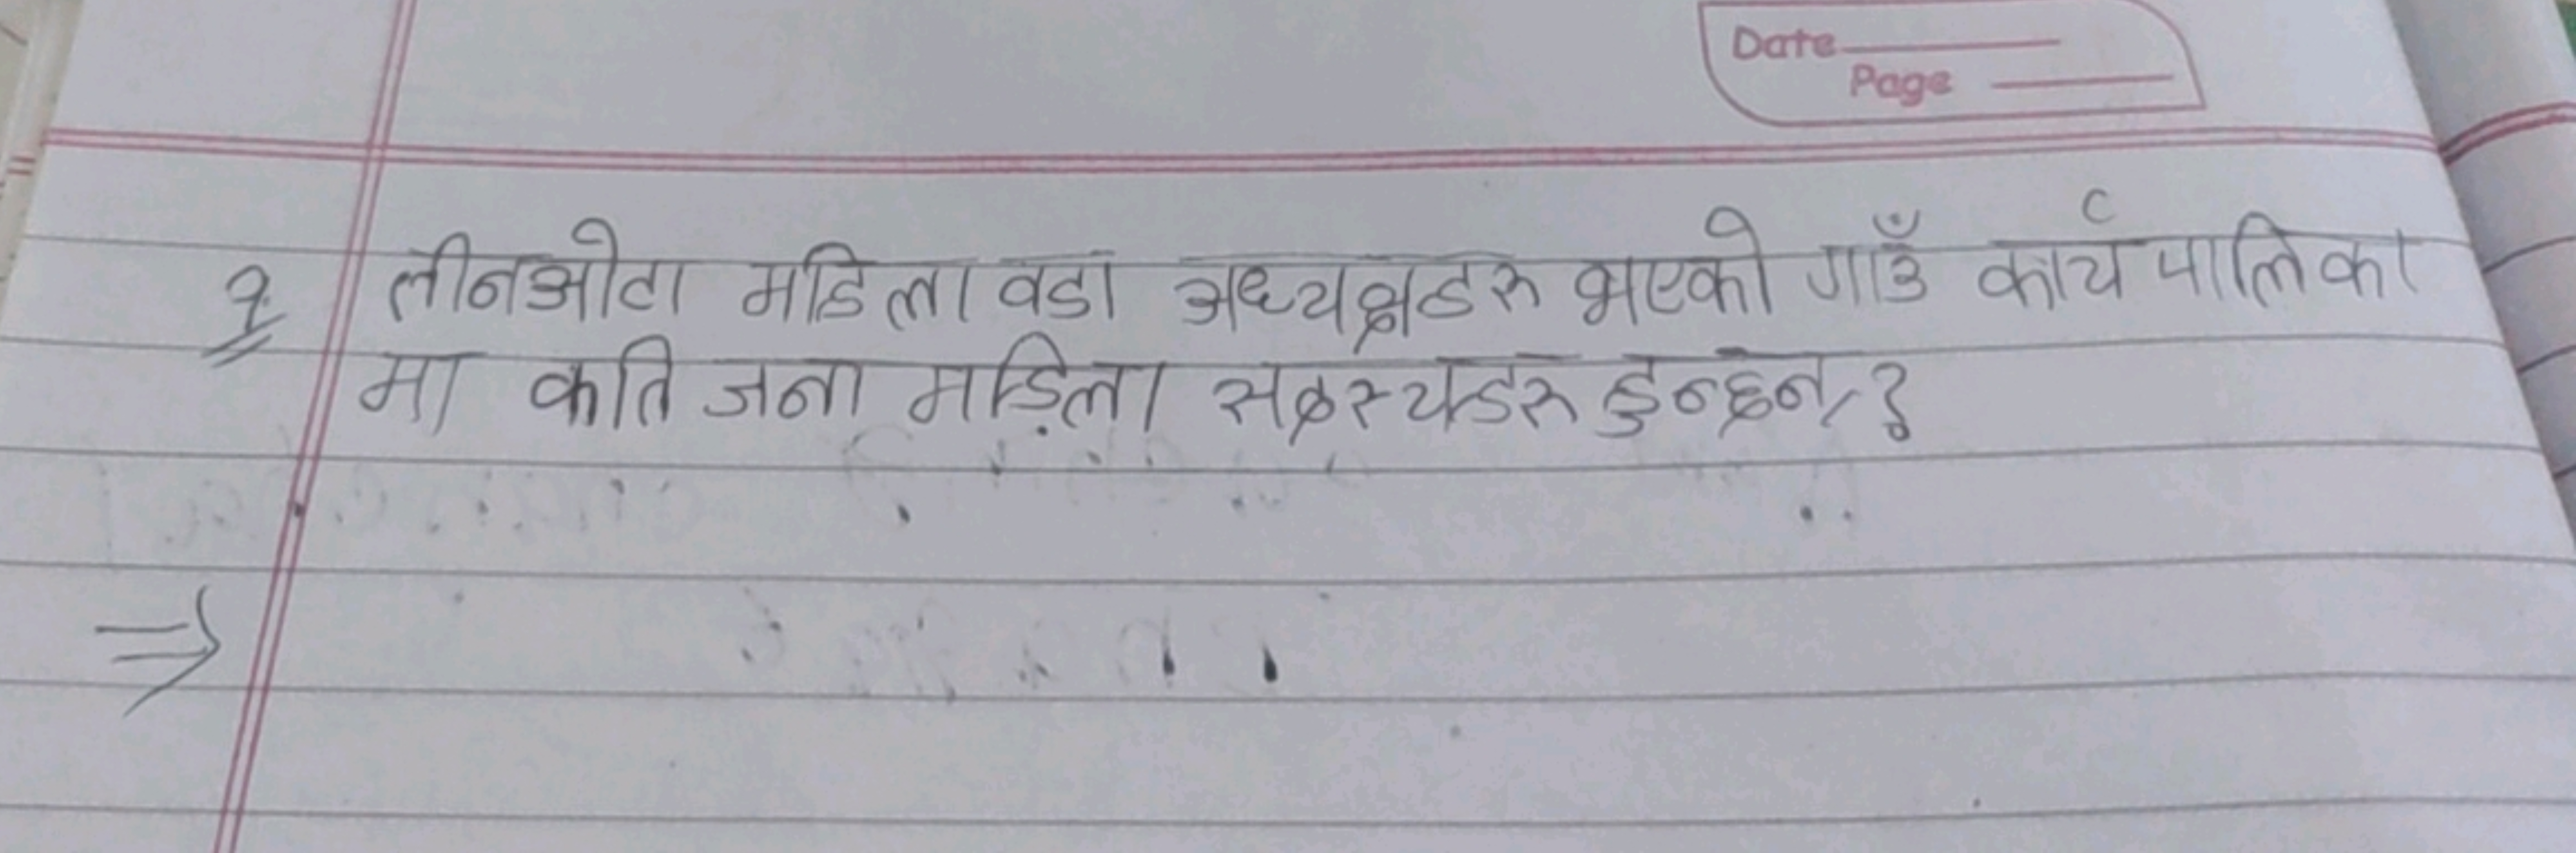 Date
Page
१ तीनओटा महिला वडा अध्यक्षहरु भएको गाउँ कार्यपालिका
मा कति जना महिला सदस्यहरु हुन्छन्?
⇒